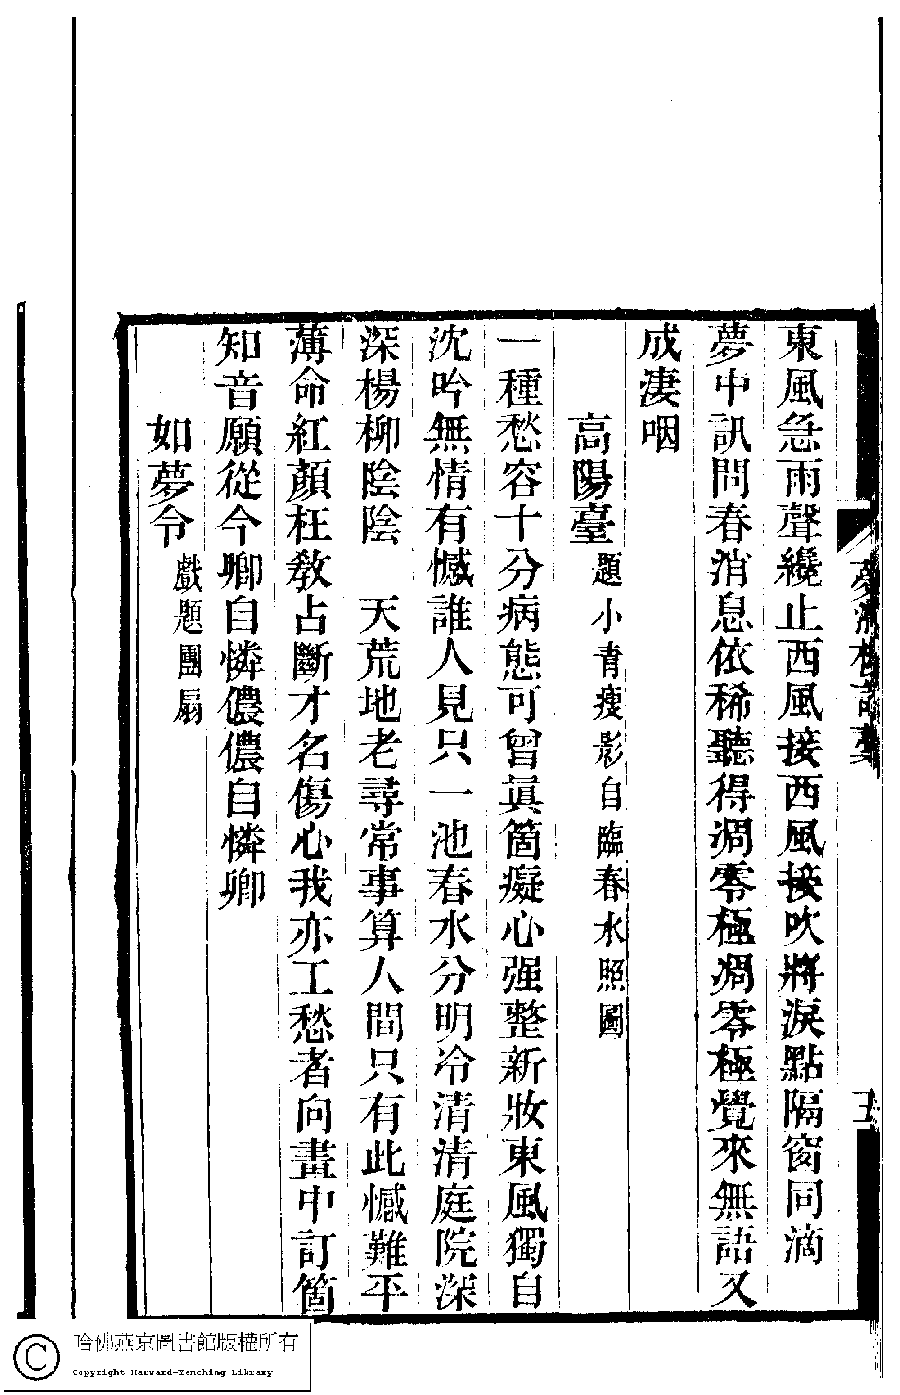 東風急雨聲纔止西風接西風接吹將淚點隔窗同滴
夢中訊問春消息依稀聽得凋零極凋零極覺來無語又
成淒咽
高陽臺題小青瘦影自臨春水照圖
一種愁容十分病態可曾眞箇癡心强整新妝東風獨自
沈吟無情有憾誰人見只一池春水分明冷清清庭院深
深楊柳陰陰　天荒地老尋常事算人間只有此憾難平
薄命紅顏枉敎占斷才名傷心我亦工愁者向畫中訂箇
知音願從今卿自憐儂儂自憐卿
如夢令戲題團扇
哈佛燕京圖書館版權所有
Copyright Harvard-Yenching Library